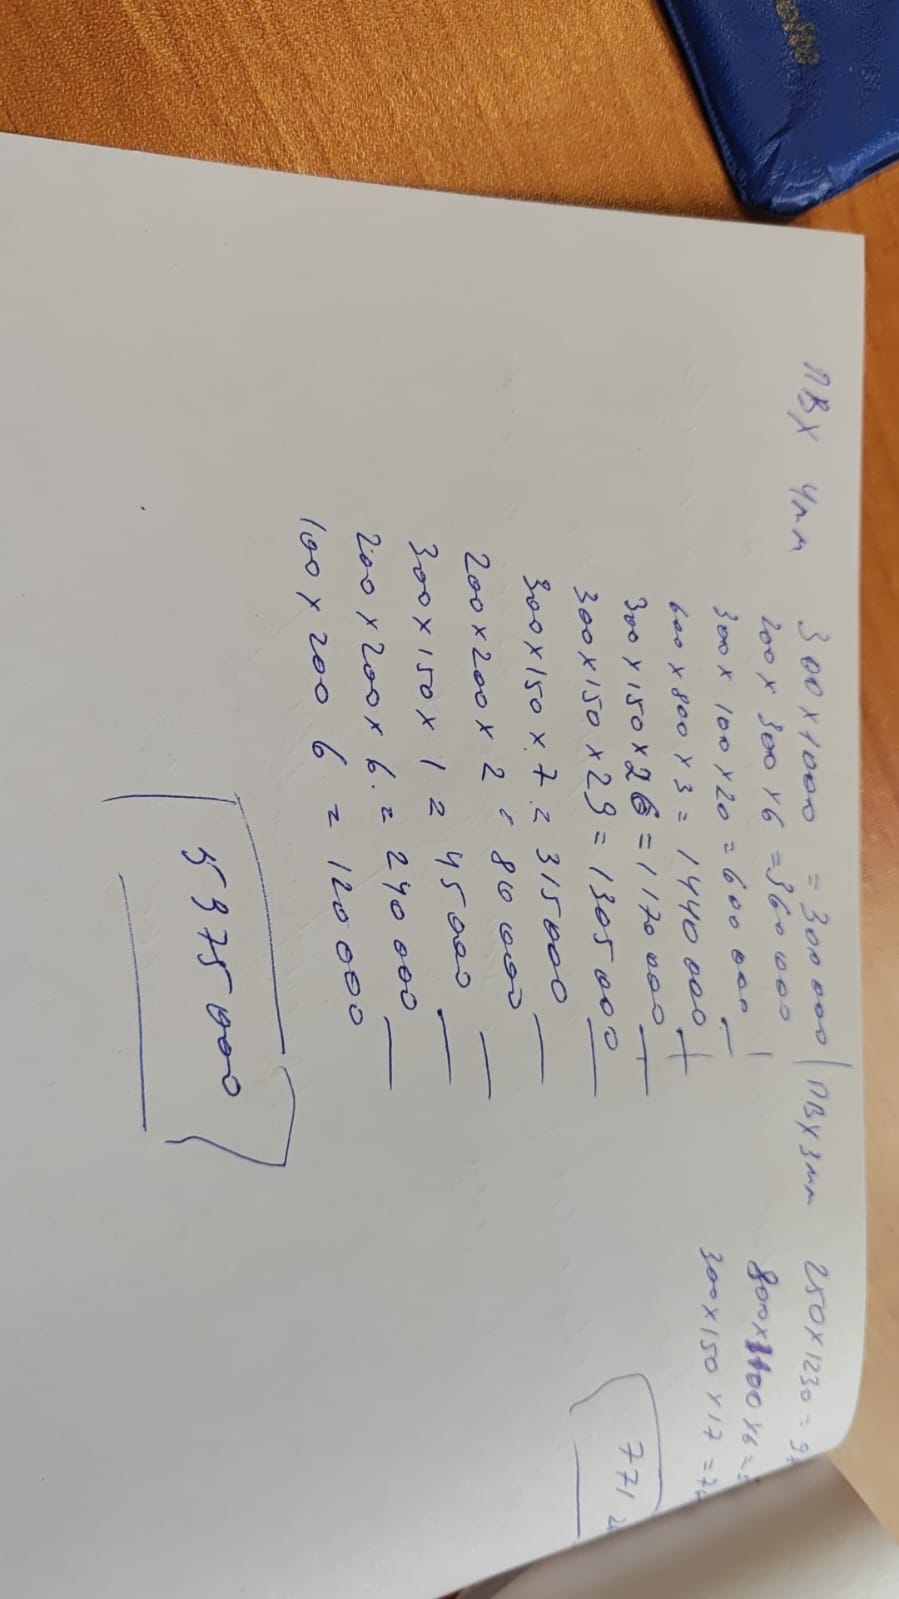 ПВХ 4мм 300 x 1000 = 300 000
200 x 300 x 6 = 360 000
300 x 100 x 20 = 600 000
600 x 800 x 3 = 1440 000
300 x 150 x 26 = 1170 000
300 x 150 x 29 = 1305 000
300 x 150 x 7 = 315000
200 x 200 x 2 = 80 000
300 x 150 x 1 = 45000
200 x 200 x 6 = 240 000
100 x 200 6 = 120 000
5975 000
ПВХ 3мм 250 x 1230 =
800 x 1100 x 6 =
300 x 150 x 17 =
771